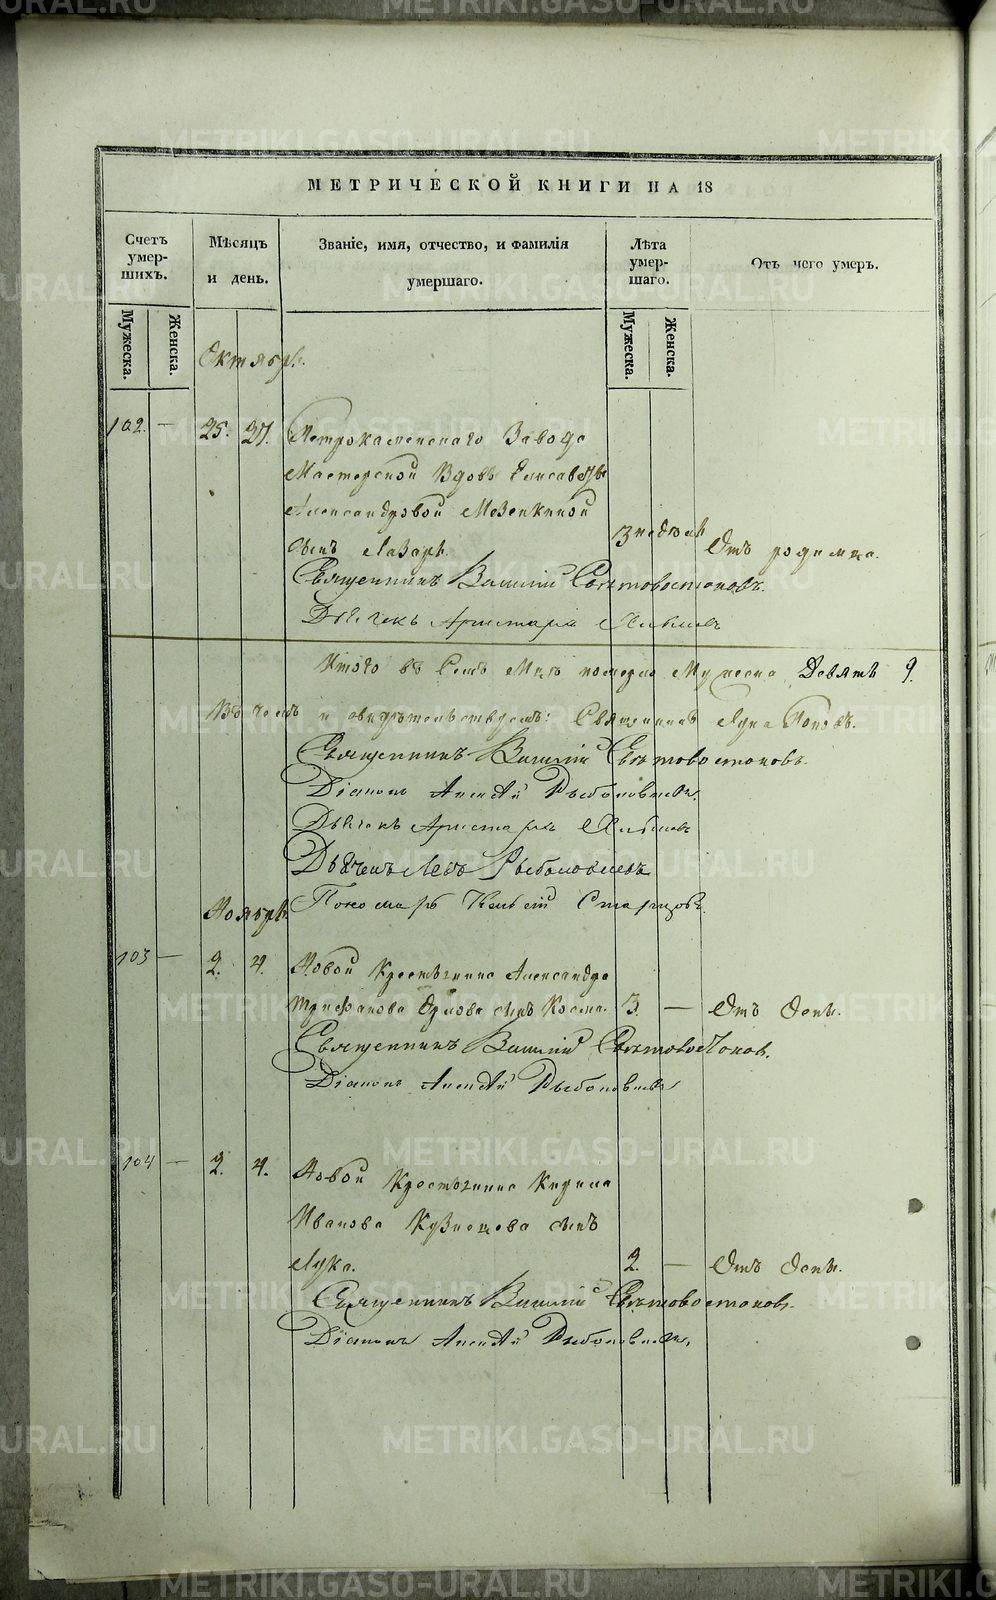 МЕТРИЧЕСКОЙ КНИГИ НА 18
Счетъ умер-шихъ.
Мѣсяцъ и день.
Званіе, имя, отчество, и фамилія умершаго.
Лѣта умер-шаго.
Отъ чего умеръ.
Мужеска.
Женска.
Мужеска.
Женска.
Октябрь.
102. — 25. 27. Петрокаменскаго Завода
Мастерской Вдовы Елисаветы
Александровой Мезениной
сынъ Лазарь. 3 недѣли Отъ родимца.
Священникъ Василій Свѣтовостоковъ.
Дьячекъ Аристархъ
Итого въ Семъ М-цѣ померло Мужеска Девять 9.
Въ чемъ и свидѣтельствуемъ: Священникъ Лука Поповъ.
Священникъ Василій Свѣтовостоковъ.
Діаконъ Алексѣй Рыболовлевъ.
Дьячекъ Аристархъ
Дьячекъ Левъ Рыболовлевъ
Ноябрь. Пономарь Старцовъ.
103 — 2. 4. Новой Крестьянина Александра
Трифанова Орлова сынъ Косма. 3. — Отъ оспы.
Священникъ Василій Свѣтовостоковъ.
Діаконъ Алексѣй Рыболовлевъ
104 — 2. 4. Новой Крестьянина Кирила
Иванова Кузнецова сынъ
Лука. 2. — Отъ оспы.
Священникъ Василій Свѣтовостоковъ.
Діаконъ Алексѣй Рыболовлевъ.
METRIKI.GASO-URAL.RU